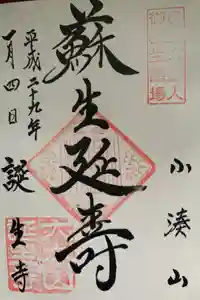 小湊山
蘇生延壽
誕生寺
平成二十九年
一月四日